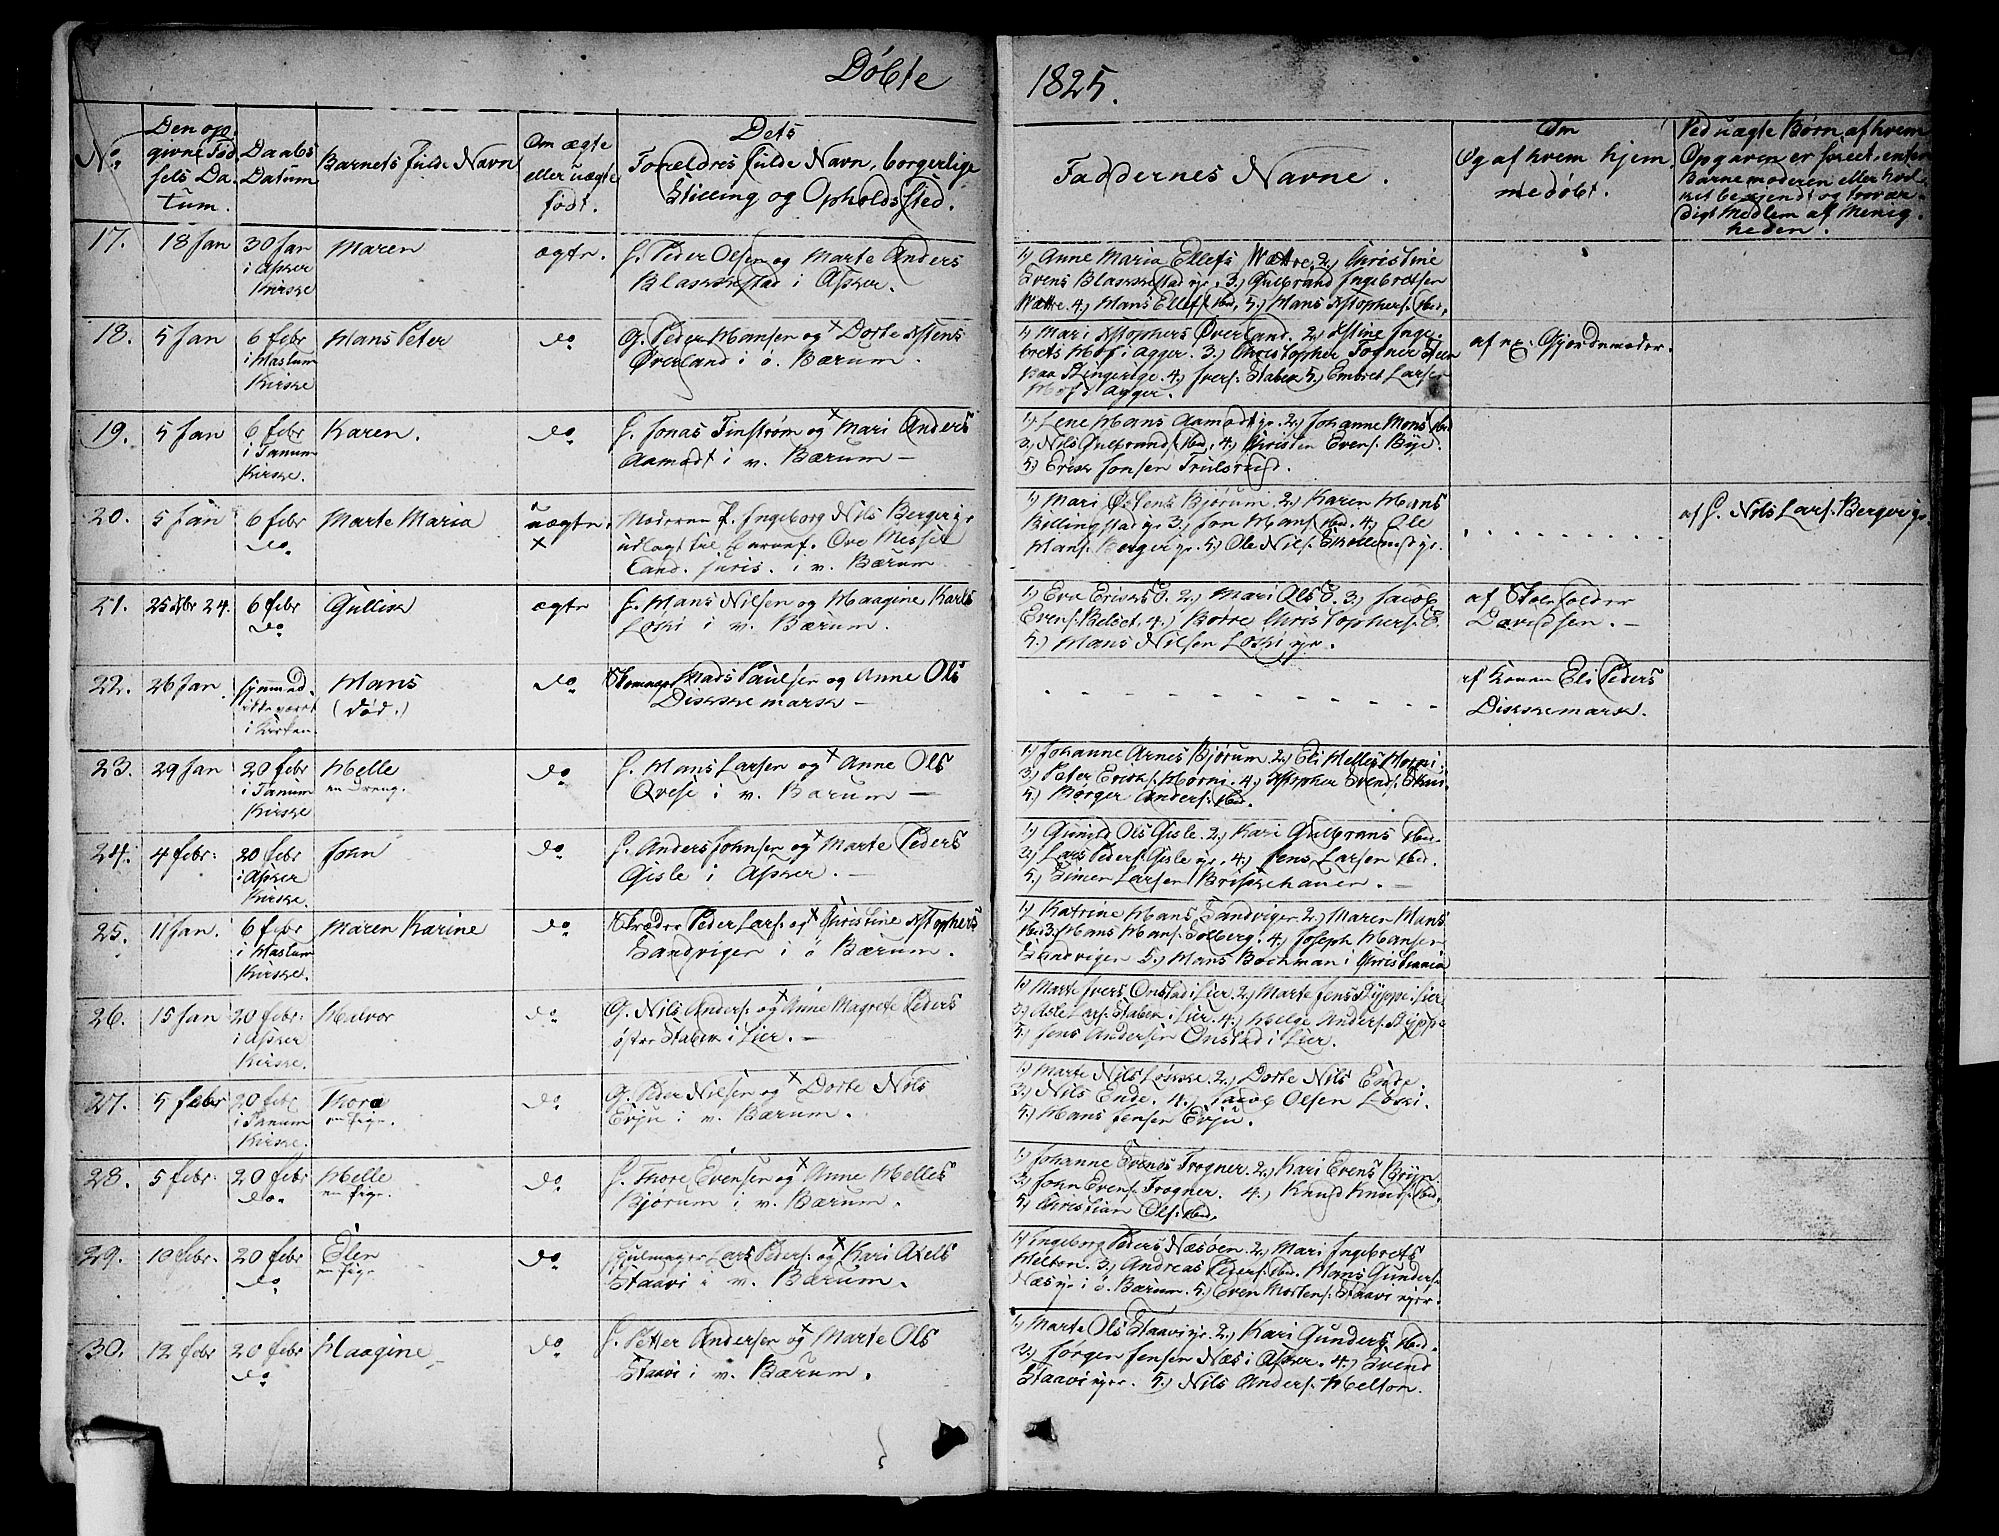 Døbte
1825.
No.
Den op-
givne Fød
sels Da-
tum.
Daabs
Datum
Barnets fulde Navn
Om ægte
eller uægte
født.
Dets
Foreldres fulde Navn, borgerlige
Stilling og Opholdssted.
Faddernes Navne.
Om
Og af hvem hjem
medøbt.
Ved uægte Børn, af hvem
Opgaven er skeet, enten
Barnemoderen eller hvil
ket bekjendt og troevær-
digt Medlem af Menig
heden.
17.
18 Jan
30 Jan
i Asker
Kirke
Maren
ægte.
Peder Olsen og Marte Anders
Blakkestad i Asker.
1) Anne Maria Ellefs Wættre. 2) Christine
Evens Blakkestad yr. 3.) Gulbrand Ingebretsen
Wættre. 4.) Hans Ellefs. ibid. 5.) Hans Xstophers. ibid.
18.
5 Jan
6 febr
i Haslum
Kirke
Hans Peter
do
G. Peder Hansen og Dorte Xstens
Øverland i ø. Bærum
1) Mari Xstophers Øverland. 2.) Xstine Inge
brets Hof i Agger. 3.) Christopher Togner
paa Ringerige. 4.) Ivers. Stabek 5.) Embret Larsen
Hof i Agger.
af ex: Gjordemoder.
19.
5 Jan
6 febr
i Tanum
Kirke.
Karen.
do
Jonas Finstrøm og Mari Anders
Aamodt i v. Bærum –
1) Lene Hans Aamodt yr. 2.) Johanne Hans ibid
3.) Nils Gulbrands. ibid. 4.) Christen Evens. Bye.
5.) Erik Jonsen Trulsrud.
20.
5 Jan
6 febr
do
Marte Maria
uægte.
x
Moderen P. Ingeborg Nils Berger yr
udlagt til Barnef. Ove
Cand. juris. i v. Bærum
1) Mari Østens Bjørum 2.) Karen Hans
Billingstad yr 3.) Jon Hans. ibid. 4.) Ole
Hans. Berger yr. 5.) Ole Nils.
af Nils Lars. Berger yr.
21.
25 24.
6 febr
do
Gullik
ægte
Hans Nilsen og Haagine Karls
Løski i v. Bærum.
1) Eve Eriks D. 2.) Mari Ols D. 3.) Jacob
Evens. Beloet. 4.) Børre Christophers. E.
5.) Hans Nilsen Løski yr.
af Skoleholder
Davidsen. –
22.
26 Jan.
hjemmed.
ikke været
i Kirken.
Hans
(død.)
do
Mads Paulsen og Anne Ols
Dikkemark –
af Konen Eli Peders
Dikkemark.
23.
29 Jan
20 febr
i Tanum
Kirke
Helle
en Dreng.
do
Hans Larsen og Anne Ols
Qvese i v. Bærum –
1) Johanne Arnes Bjørum 2.) Eli Helles Horni.
3.) Peter Eriks. Horni. 4.) Xstopher Evends. Skui.
5.) Børger Anders. ibid.
24.
4 febr:
20 febr
i Asker
Kirke.
John
do
Anders Johnsen og Marte Peders
Gisle i Asker. –
1) Gunild Ols Gisle. 2.) Kari Gulbrans ibid.
3.) Lars Peders. Gisle yr. 4.) Jens Larsen ibid.
5.) Simen Larsen Briskehauen. –
25.
11 Jan.
6 febr
i Haslum
Kirke.
Maren Karine
do
Skræder Peder Lars. og Christine Xstophers
Sandvigen i ø Bærum.
1) Katrine Hans Sandvigen 2.) Maren Hans
ibid. 3.) Hans Hans. Solberg. 4.) Joseph Hansen
Sandvigen 5.) Hans Bochman i Christiania
26.
15 Jan
20 febr.
i Asker
Kirke.
Halvor
do
G. Nils Anders. og Anne Magrete Peders
østre Stabek i Lier. –
1) Marte Ivers Onstad i Lier. 2.) Marte Jens Gyppe i Lier
3.) Asle Lars. Stabek i Lier. 4.) Helge Anders. Gyppe
5.) Jens Andersen Onstad i Lier.
27.
5 febr
20 febr
i Tanum
Kirke.
Thora
en Pige.
do
G. Peder Nielsen og Dorte Nils
Evju i v. Bærum.
1) Marte Nils Løkke. 2.) Dorte Nils Ende.
3.) Nils Ende. 4.) Jacob Olsen Løski.
5.) Hans Jensen Evju.
28.
5 febr.
20 febr
do.
Helle
en Pige.
do
Thore Evensen og Anne Helles
Bjørum i v. Bærum.
1) Johanne Svends Trogner. 2.) Kari Evens Bryn.
3.) John Evens. Trogner. 4.) Knud Knuds. ibid.
5.) Christian Ols. ibid.
29.
10 febr.
20 febr
do
Elen
en Pige
do
Hjulmager Lars Peders. og Kari Axels
Staavi i v. Bærum.
1) Ingeborg Peders Næsøen. 2.) Mari Ingebrets
Helton. 3.) Andreas Peders. ibid. Hans Gunders.
Næs yr i ø. Bærum. 5.) Even Mortens. Staavi nyer.
30.
12 febr
20 febr
do
Haagine
do
Petter Andersen og Marte Ols
Staavi i v. Bærum.
1) Marte Ols Staavi yr. 2.) Kari Gunders ibid.
3.) Jørgen Jensen Næs i Asker. 4.) Svend
Staavi nyer. 5.) Nils Anders. Helton.